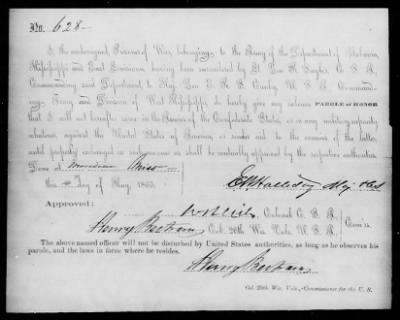 No. 628
I, the undersigned, Prisoner of War, belonging to the Army of the Department of Alabama,
Mississippi and East Louisiana, having been surrendered by Lt. Gen. R. Taylor, C. S. A.,
Commanding said Department, to Maj. Gen. E. R. S. Canby, U. S. A., Command-
ing Army and Division of West Mississippi, do hereby give my solemn PAROLE OF HONOR
that I will not hereafter serve in the Armies of the Confederate States, or in any military capacity
whatever, against the United States of America, or render aid to the enemies of the latter,
until properly exchanged in such manner as shall be mutually approved by the respective authorities.
Done at Meridian Miss
this day of May 1865.
Approved:
Colonel C. S. A.
Henry Bertram Col. 20th Wis. Vols. U. S. A. Com'rs.
The above named officer will not be disturbed by United States authorities, as long as he observes his
parole, and the laws in force where he resides.
Henry Bertram
Col. 20th Wis. Vols., Commissioner for the U. S.